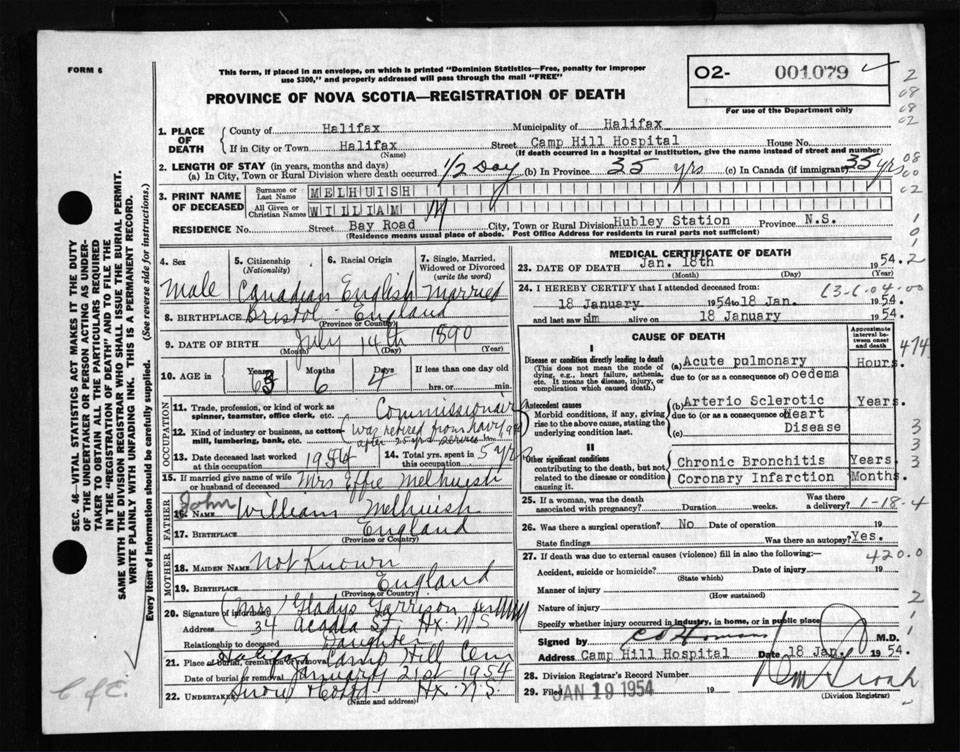 FORM 6
This form, if placed in an envelope, on which is printed "Dominion Statistics—Free, penalty for improper
use $300," and properly addressed will pass through the mail "FREE"
O2- 001079
For use of the Department only
PROVINCE OF NOVA SCOTIA—REGISTRATION OF DEATH
1. PLACE OF DEATH County of Halifax Municipality of Halifax
If in City or Town Halifax (Name) Street Camp Hill Hospital House No.
(If death occurred in a hospital or institution, give the name instead of street and number)
2. LENGTH OF STAY (in years, months and days)
(a) In City, Town or Rural Division where death occurred 1/2 Day (b) In Province 35 yrs (c) In Canada (if immigrant) 35 yrs
3. PRINT NAME OF DECEASED Surname or Last Name MELHUISH
All Given or Christian Names WILLIAM M
RESIDENCE No. Street Bay Road City, Town or Rural Division Hubley Station Province N.S.
(Residence means usual place of abode. Post Office Address for residents in rural parts not sufficient)
4. Sex 5. Citizenship (Nationality) 6. Racial Origin 7. Single, Married, Widowed or Divorced (write the word)
Male Canadian English Married
8. BIRTHPLACE Bristol England
(Province or Country)
9. DATE OF BIRTH July 14th 1890
(Month) (Day) (Year)
10. AGE in Years 63 Months 6 Days 4 If less than one day old hrs. or min.
OCCUPATION
11. Trade, profession, or kind of work as spinner, teamster, office clerk, etc. Commissionair
12. Kind of industry or business, as cotton mill, lumbering, bank, etc. was retired from navy after 25 yrs service in
13. Date deceased last worked at this occupation 1954 14. Total yrs. spent in this occupation 5 yrs
15. If married give name of wife or husband of deceased Mrs Effie Melhuish
FATHER
16. Name John William Melhuish
17. BIRTHPLACE England
(Province or Country)
MOTHER
18. MAIDEN NAME Not Known
19. BIRTHPLACE England
(Province or Country)
20. Signature of informant Mrs Gladys Garrison
Address 34 Acadia St. Hx. N.S
Relationship to deceased Daughter
21. Place of burial, cremation or removal Halifax Camp Hill Cem
Date of burial or removal January 21st 1954
22. Undertaker Snow & Co Ltd Hx. N.S.
(Name and address)
MEDICAL CERTIFICATE OF DEATH
23. DATE OF DEATH Jan. 18th 1954.
(Month) (Day) (Year)
24. I HEREBY CERTIFY that I attended deceased from:
18 January 1954 to 18 Jan. 1954.
and last saw him alive on 18 January 1954.
CAUSE OF DEATH
Approximate interval between onset and death
I
Disease or condition directly leading to death (a) Acute pulmonary Hours.
(This does not mean the mode of dying, e.g., heart failure, asthenia, etc. It means the disease, injury, or complication which caused death.)
due to (or as a consequence of) oedema
Antecedent causes (b) Arterio Sclerotic Years.
Morbid conditions, if any, giving rise to the above cause, stating the underlying condition last.
due to (or as a consequence of) Heart
(c) Disease
II
Other significant conditions contributing to the death, but not related to the disease or condition causing it.
Chronic Bronchitis Years.
Coronary Infarction Months.
25. If a woman, was the death associated with pregnancy? Duration weeks. Was there a delivery? 1-18-4
26. Was there a surgical operation? No Date of operation 19
State findings Was there an autopsy? Yes.
27. If death was due to external causes (violence) fill in also the following:— 420.0
Accident, suicide or homicide? Date of injury 19
(State which)
Manner of injury
(How sustained)
Nature of injury
Specify whether injury occurred in industry, in home, or in public place
Signed by M.D.
Address Camp Hill Hospital Date 18 Jan. 1954.
28. Division Registrar's Record Number
29. Filed JAN 19 1954 19
(Division Registrar)
SEC. 46—VITAL STATISTICS ACT MAKES IT THE DUTY
OF THE UNDERTAKER OR PERSON ACTING AS UNDERTAKER TO OBTAIN ALL THE PARTICULARS REQUIRED
IN THE "REGISTRATION OF DEATH" AND TO FILE THE
SAME WITH THE DIVISION REGISTRAR WHO SHALL ISSUE THE BURIAL PERMIT.
WRITE PLAINLY WITH UNFADING INK. THIS IS A PERMANENT RECORD.
Every item of information should be carefully supplied. (See reverse side for instructions.)